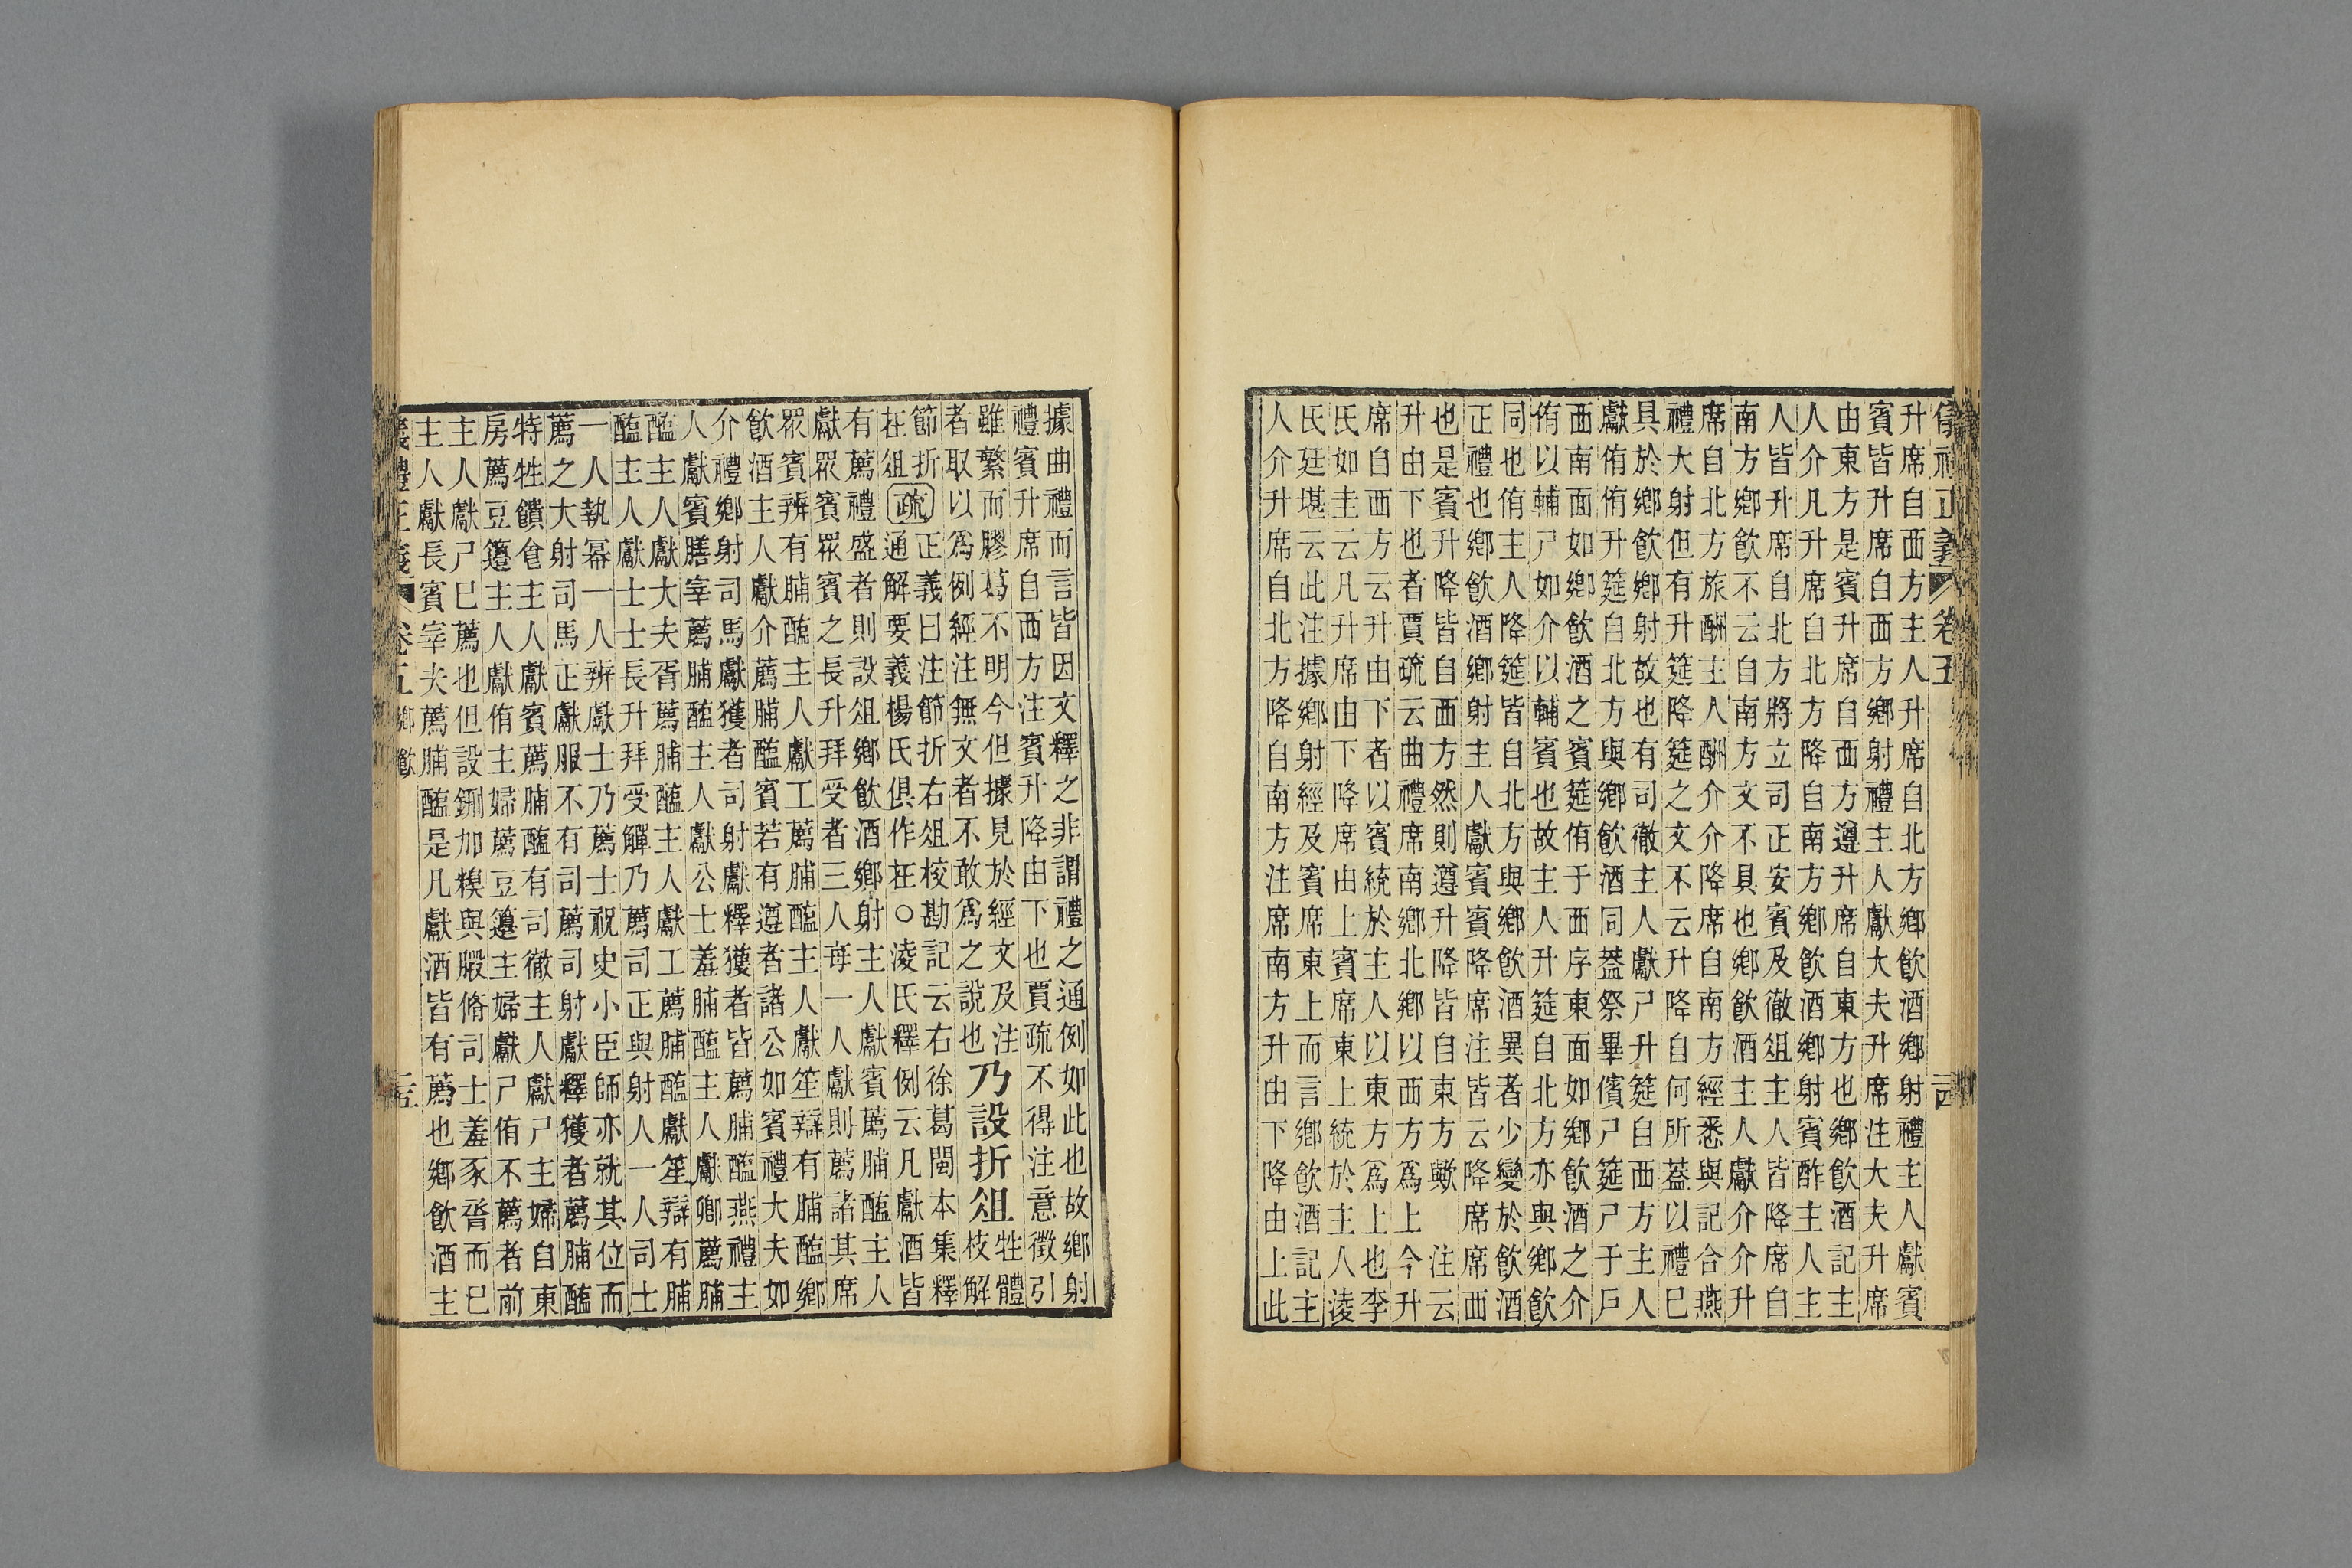 儀禮正義 卷五
升席自西方主人升席自北方鄉飲酒鄉射禮主人獻賓
賓皆升席自西方鄉射禮主人獻大夫升席注大夫升席
由東方是賓升席自西方遵升席自東方也鄉飲酒記主
人介凡升席自北方降自南方鄉飲酒鄉射賓酢主人主
人皆升席自北方將立司正安賓及徹俎主人皆降席自
南方鄉飲不云自南方文不具也鄉飲酒主人獻介介升
席自北方旅酬主人酬介介降席自南方經悉與記合燕
禮大射但有升筵降筵之文不云升降自何所蓋以禮巳
具於鄉飲鄉射故也有司徹主人獻尸升筵自西方主人
獻侑侑升筵自北方與鄉飲酒同蓋祭畢儐尸筵尸于戶
西南面如鄉飲酒之賓筵侑于西序東面如鄉飲酒之介
侑以輔尸如介以輔賓也故主人升筵自北方亦與鄉飲
同也侑主人降筵皆自北方與鄉飲酒異者少變於飲酒
正禮也鄉飲酒鄉射主人獻賓賓降席注皆云降席席西
也是賓升降皆自西方然則遵升降皆自東方歟 注云
升由下也者賈疏云曲禮席南鄉北鄉以西方爲上今升
席自西方云升由下者以賓統於主人以東方爲上也李
氏如圭云凡升席由下降席由上賓席東上統於主人淩
氏廷堪云此注據鄉射經及賓席東上而言鄉飲酒記主
人介升席自北方降自南方注席南方升由下降由上此
據曲禮而言皆因文釋之非謂禮之通例如此也故鄉射
禮賓升席自西方注賓升降由下也賈疏不得注意徵引
雖繁而膠葛不明今但據見於經文及注
者取以爲例經注無文者不敢爲之說也
乃設折俎
牲體
枝解
節折
在俎
疏
正義曰注節折右俎校勘記云右徐葛閩本集釋
通解要義楊氏俱作在○淩氏釋例云凡獻酒皆
有薦禮盛者則設俎鄉飲酒鄉射主人獻賓薦脯醢主人
獻眾賓眾賓之長升拜受者三人每一人獻則薦諸其席
眾賓辨有脯醢主人獻工薦脯醢主人獻笙辯有脯醢鄉
飲酒主人獻介薦脯醢賓若有遵者諸公如賓禮大夫如
介禮鄉射司馬獻獲者司射獻釋獲者皆薦脯醢燕禮主
人獻賓膳宰薦脯醢主人獻公士羞脯醢主人獻卿薦脯
醢主人獻大夫胥薦脯醢主人獻工薦脯醢獻笙辯有脯
醢主人獻士士長升拜受觶乃薦司正與射人一人司士
一人執冪一人辨獻士乃薦士祝史小臣師亦就其位而
薦之大射司馬正獻服不有司薦司射獻釋獲者薦脯醢
特牲饋食主人獻賓薦脯醢有司徹主人獻尸主婦自東
房薦豆籩主人獻侑主婦薦豆籩主婦獻尸侑不薦者前
主人獻尸巳薦也但設鉶加糗與腶脩司士羞豕脀而巳
主人獻長賓宰夫薦脯醢是凡獻酒皆有薦也鄉飲酒主
儀禮正義 卷五 鄉飲